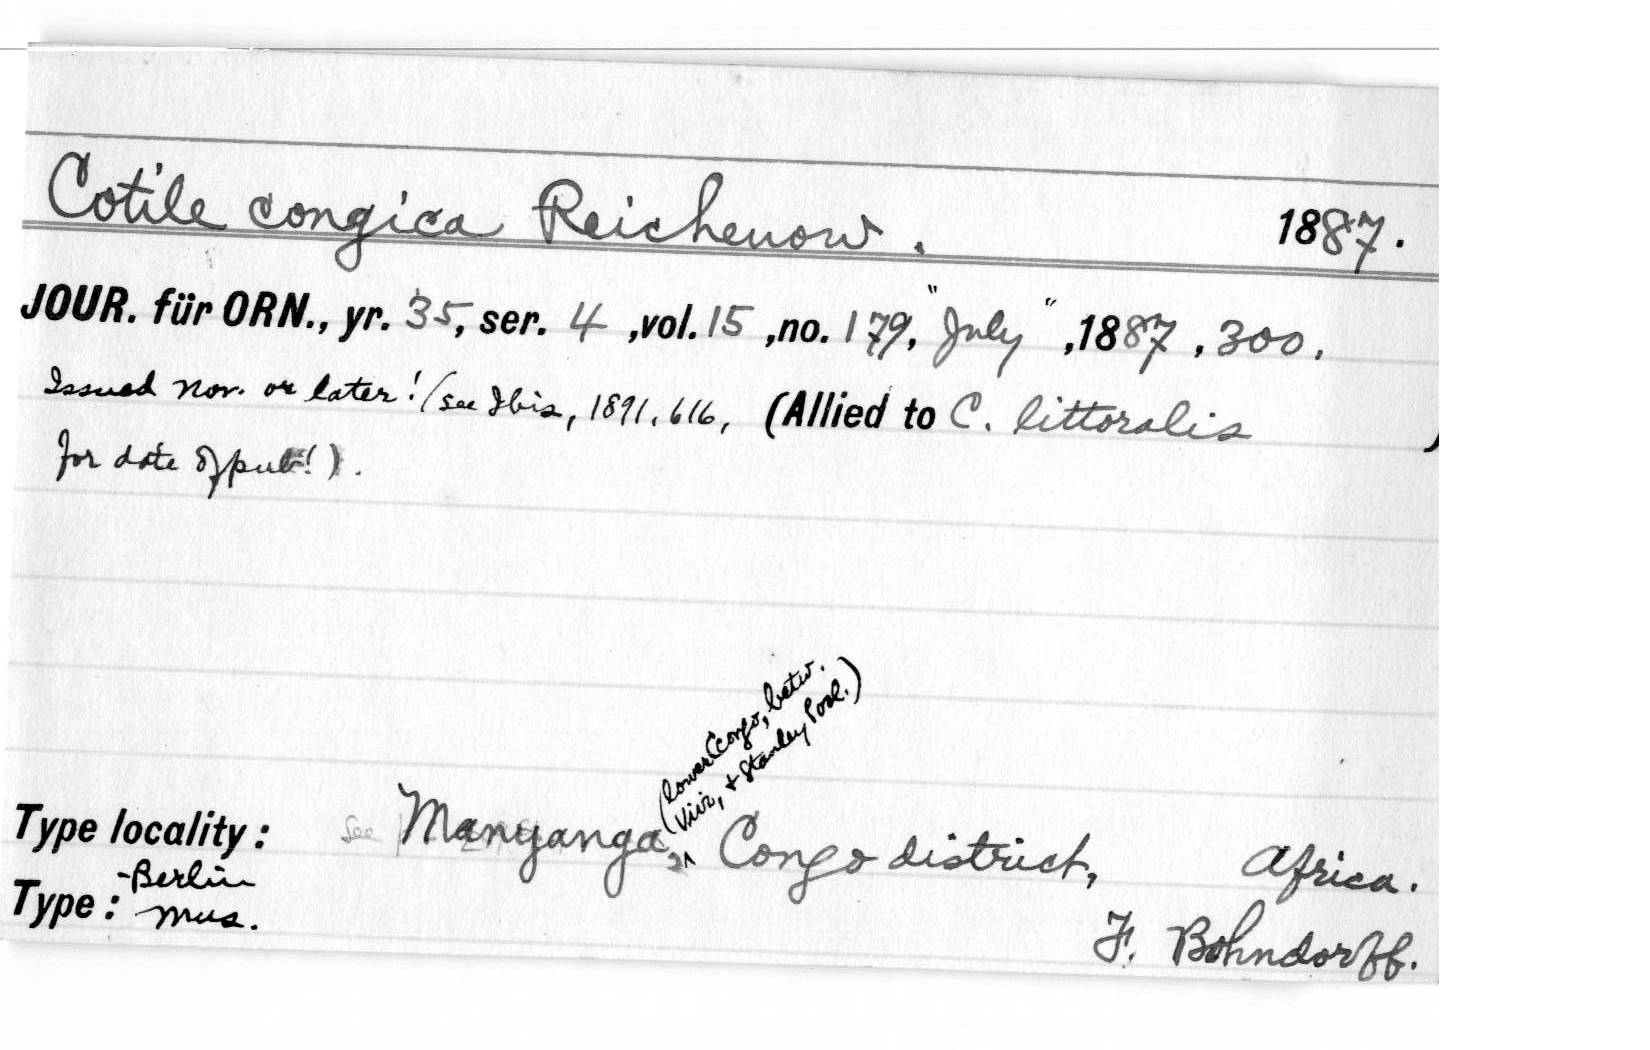 Cotile congica Reichenow. 1887.
JOUR. für ORN., yr. 35, ser. 4, vol. 15, no. 179, "July", 1887, 300.
Issued Nov. or later! (see Ibis, 1891, 616, (Allied to C. littoralis )
for date of pub!).
(lower Congo, betw.
Vivi, & Stanley Pool.)
Type locality: see Manyanga, Congo district, Africa.
Type: -Berlin
Mus.
F. Bohndorff.